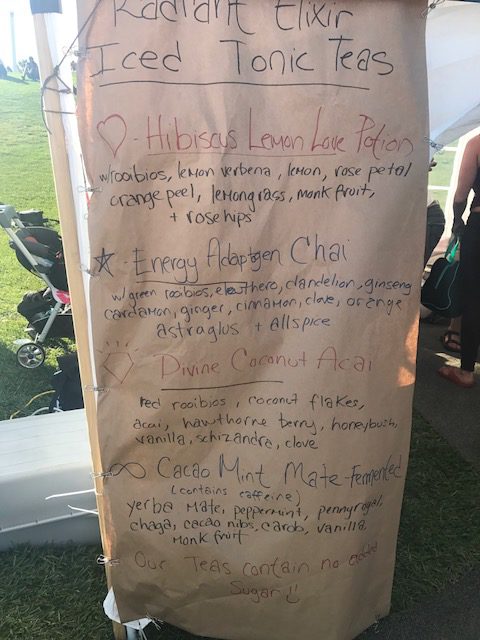 Radiant Elixir
Iced Tonic Teas
♡ - Hibiscus Lemon Love Potion
w/rooibios, lemon verbena, lemon, rose petal
orange peel, lemongrass, monk fruit,
+ rosehips
☆ - Energy Adaptgen Chai
w/green rooibios, eleuthero, dandelion, ginseng
cardamon, ginger, cinnamon, clove, orange
astraglus + allspice
Divine Coconut Acai
red rooibios, coconut flakes,
acai, hawthorne berry, honeybush,
vanilla, schizandra, clove
∞ Cacao Mint Mate - Fermented
(contains caffeine)
yerba mate, peppermint, pennyroyal,
chaga, cacao nibs, carob, vanilla,
monk fruit
Our Teas contain no added
Sugar :)